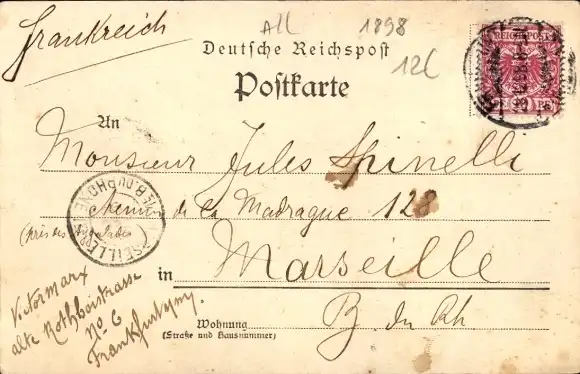 Frankreich
All 1898
12(
Deutsche Reichspost
Postkarte
REICHSPOST
An
Monsieur Jules Spinelli
Chemin de la Madrague 128
(près des Aygalades)
in Marseille
B. du Rh
Wohnung
(Straße und Hausnummer)
Victor Marx
alte Rothhofstrasse
No 6
Frankfurt
MARSEILLE
BCHES DU RHONE